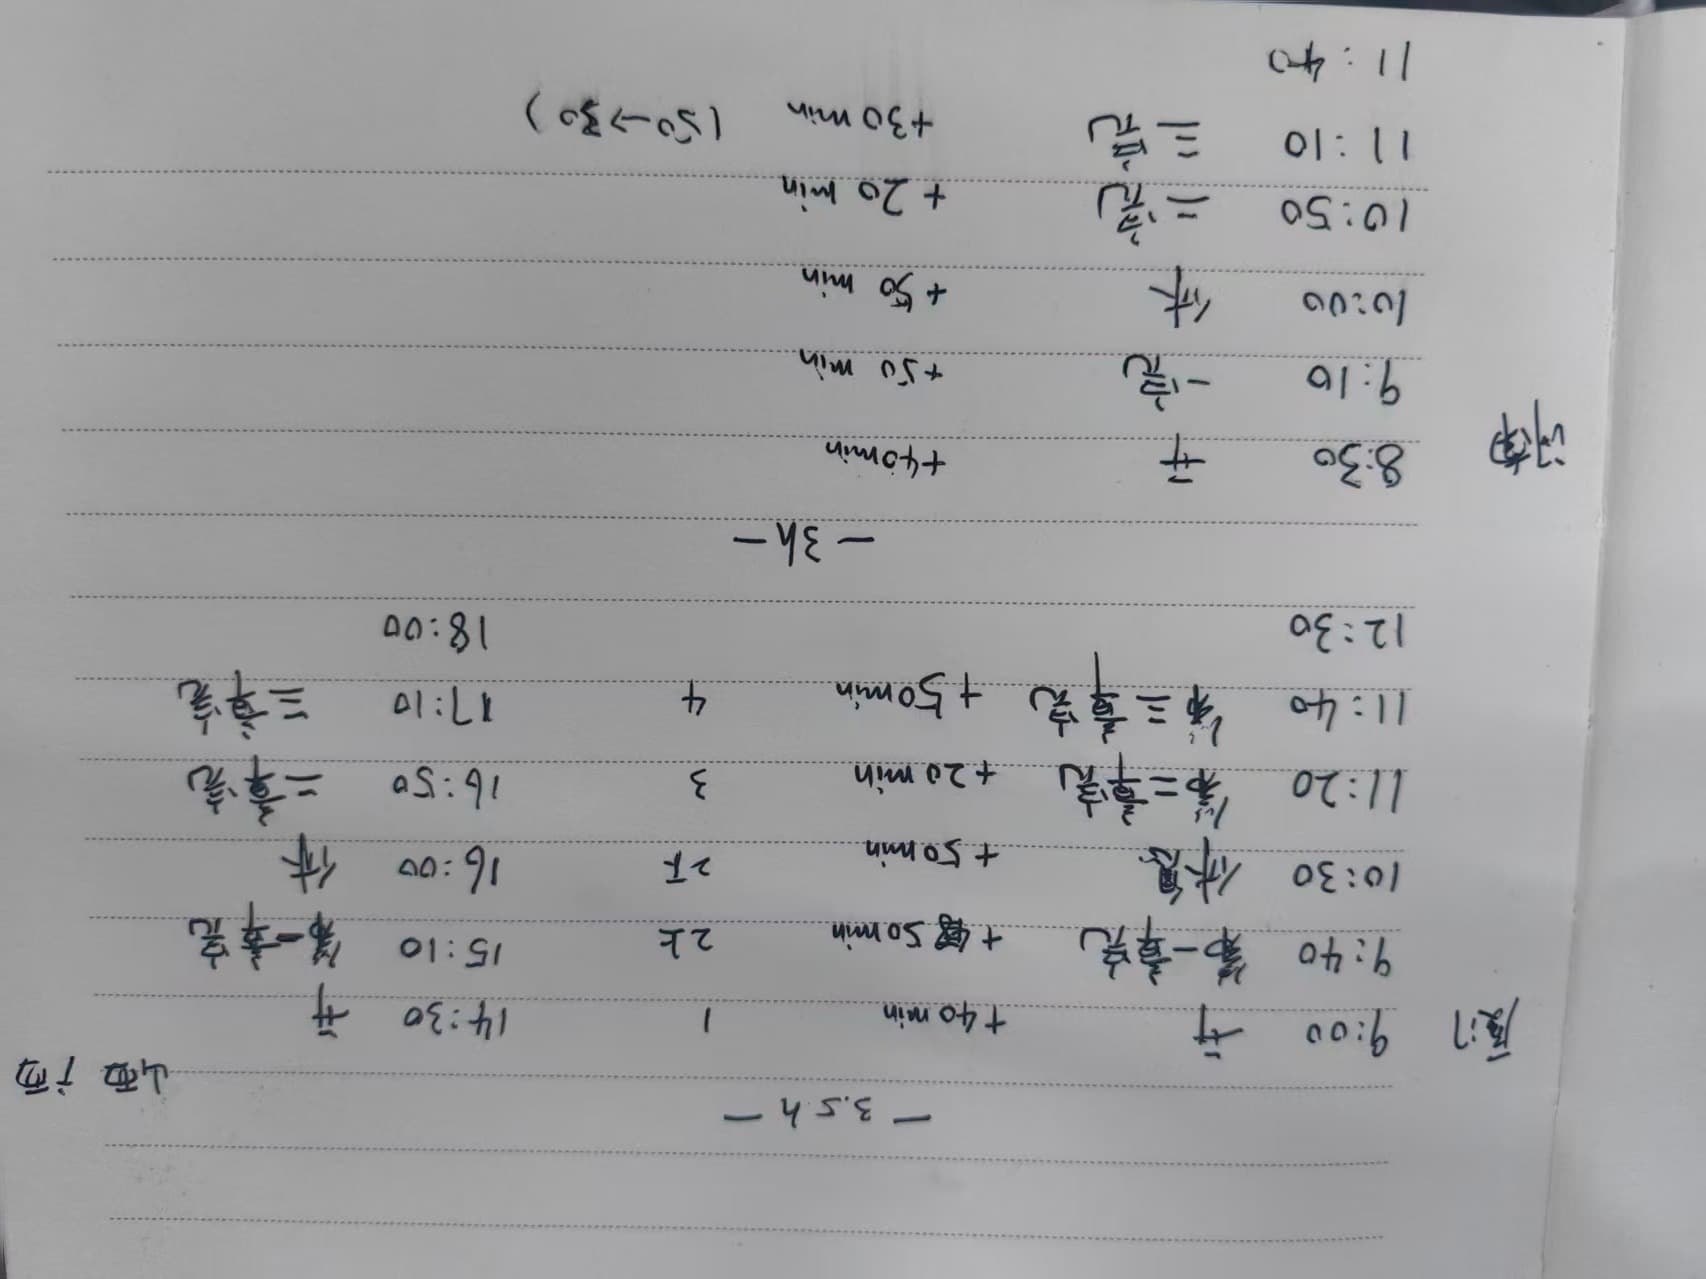 — 3.5h —
9:00 开 +40min 1 14:30 开
9:40 第一章完 +50min 2上 15:10 第一章完
10:30 休息 +50min 2下 16:00 休
11:20 第二章完 +20min 3 16:50 二章完
11:40 第三章完 +50min 4 17:10 三章完
12:30 18:00
— 3h —
8:30 开 +40min
9:10 一完 +50 min
10:00 休 +50 min
10:50 二完 +20 min
11:10 三完 +30min (50→30)
11:40